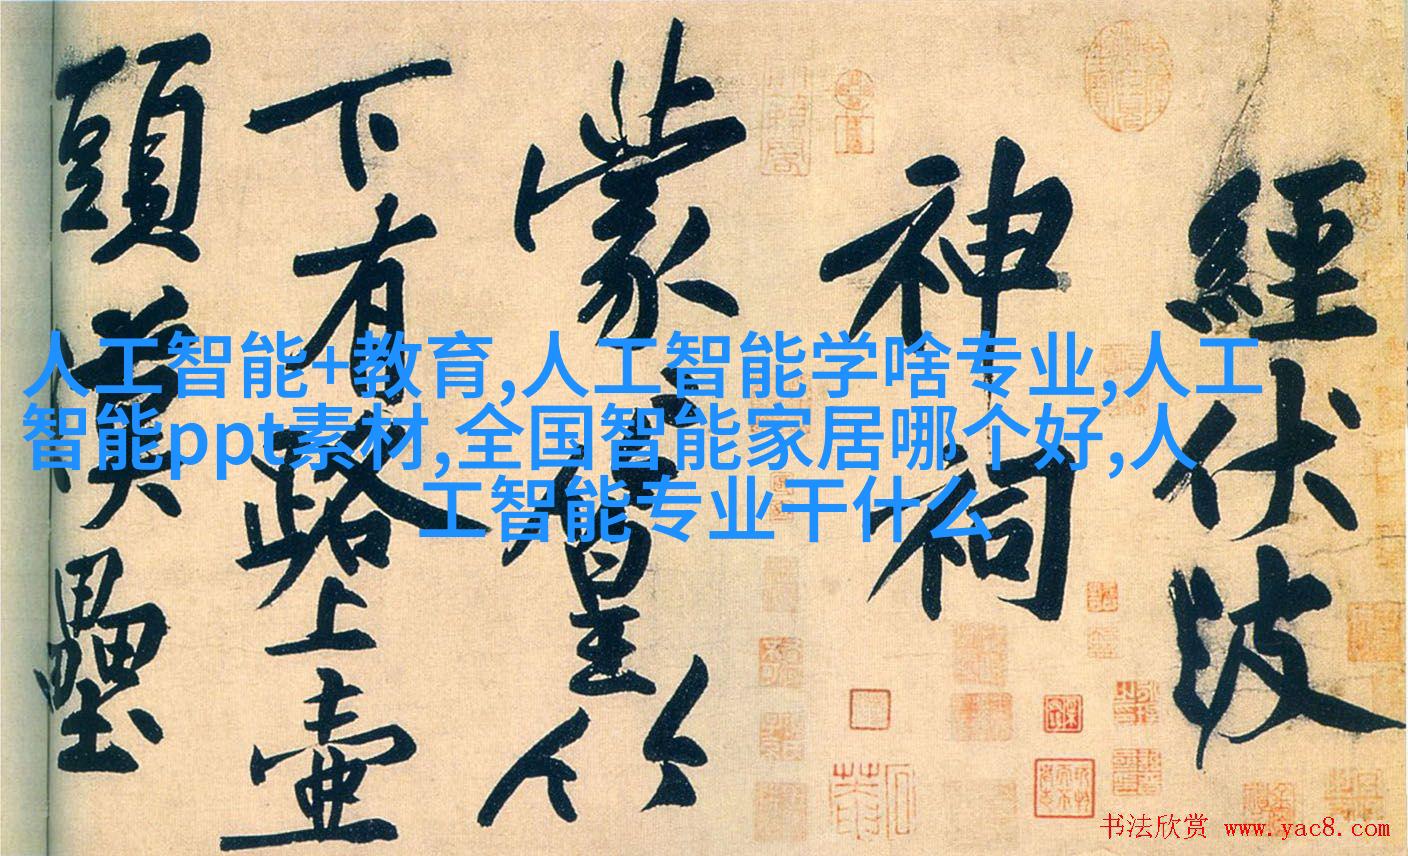 經伏波
神祠
蒙〻篁竹
下有路上壺
頭漢壘
人工智能+教育,人工智能学啥专业,人工
智能ppt素材,全国智能家居哪个好,人
工智能专业干什么
书法欣赏 www.yac8.com